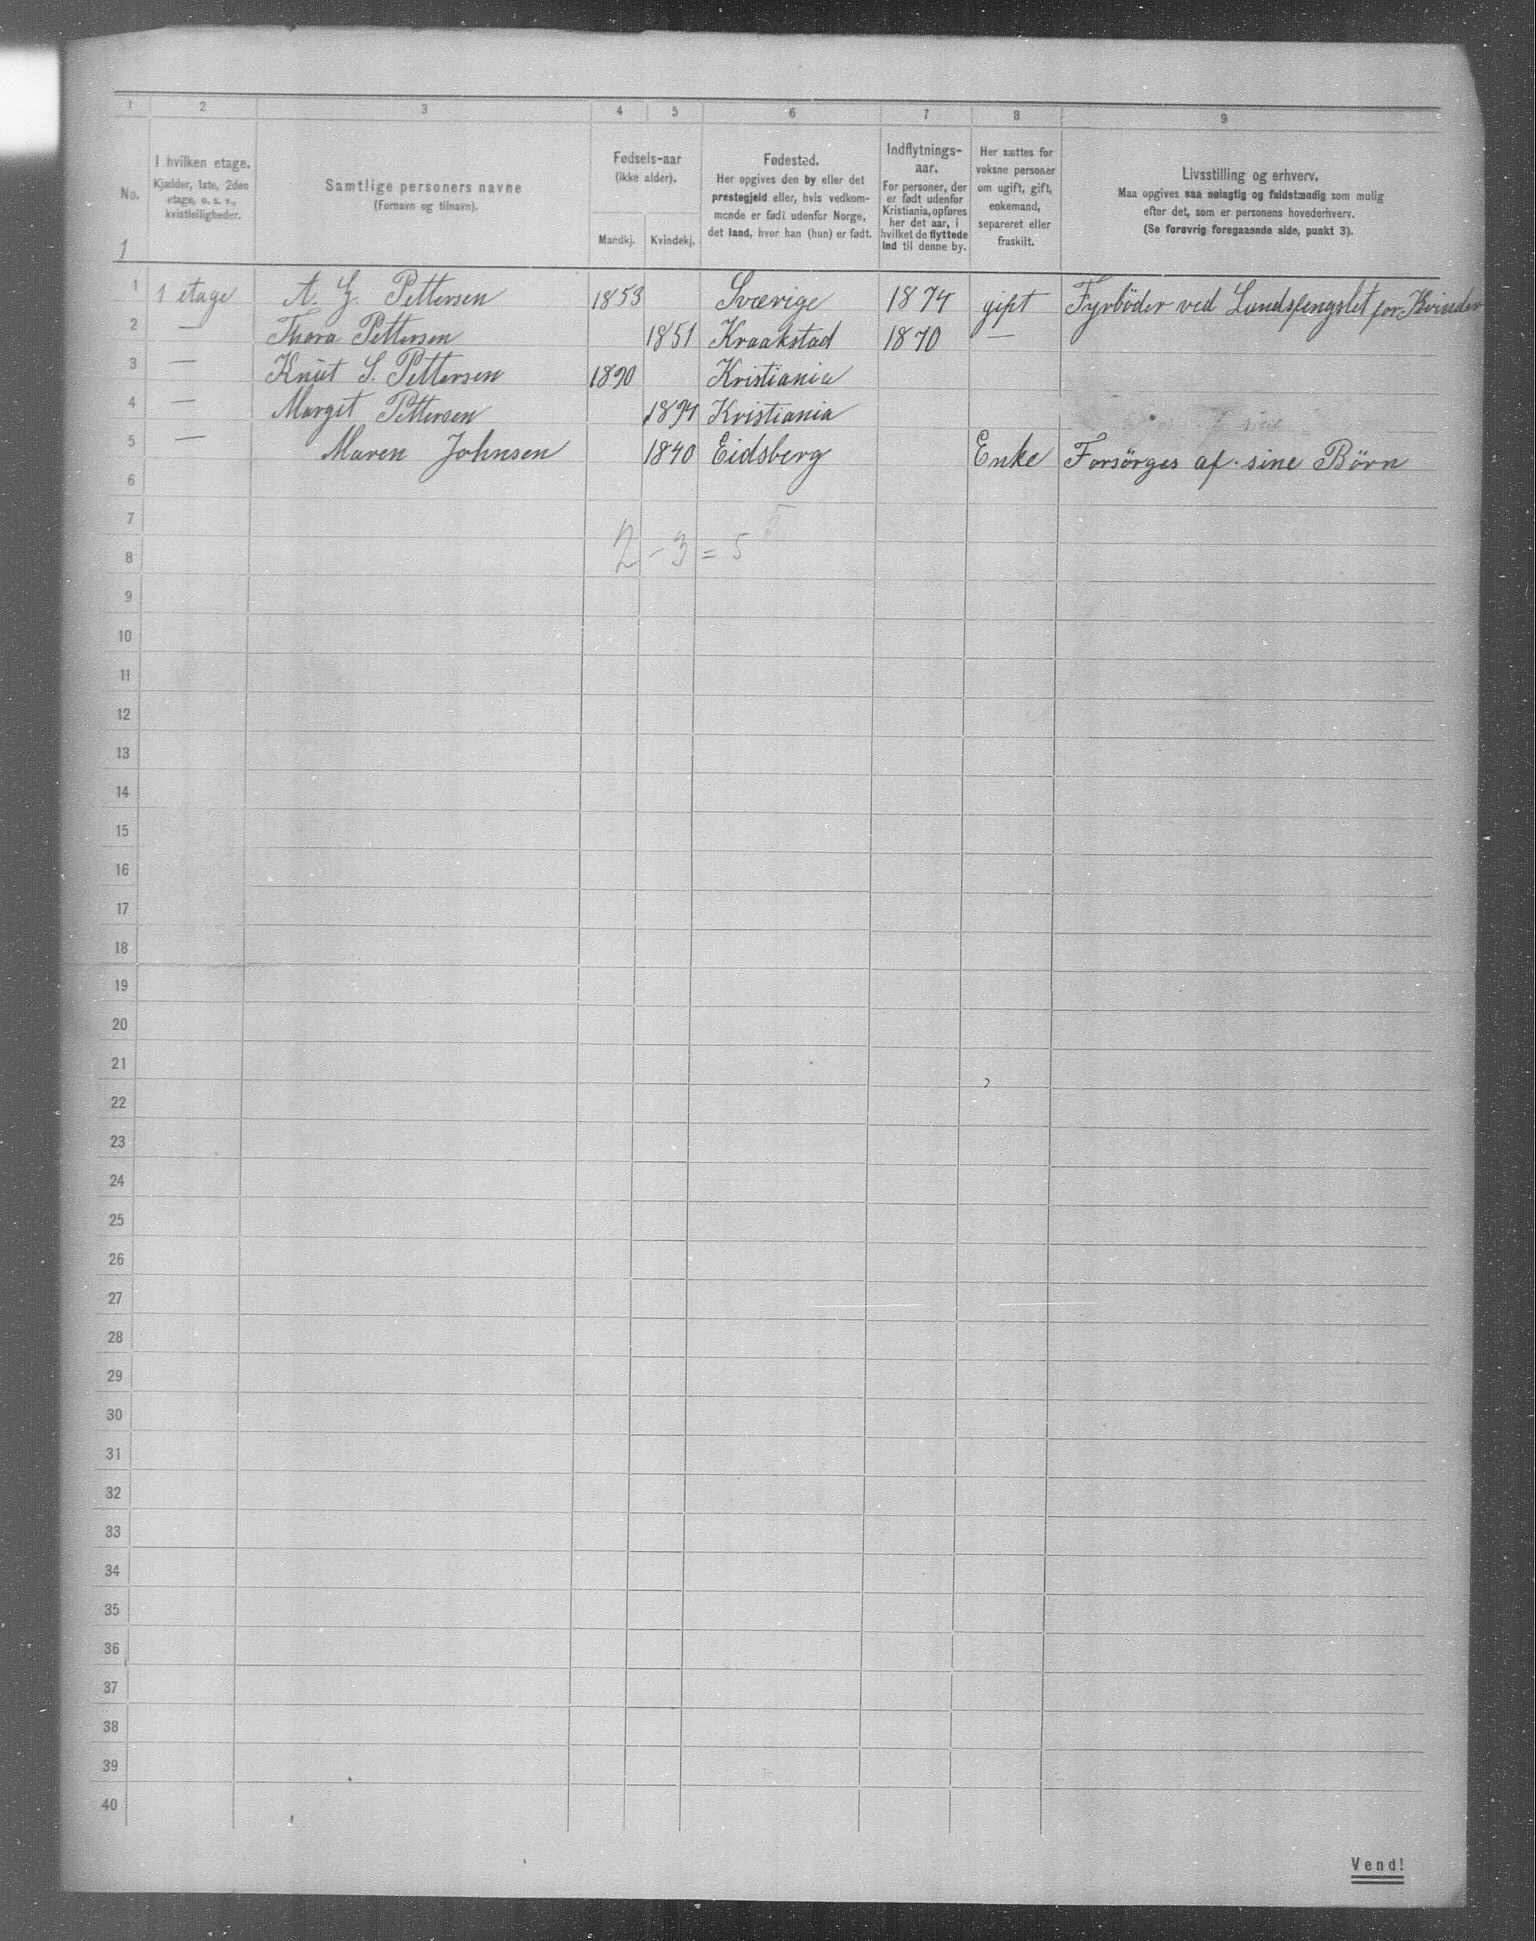 1 2 3 4 5 6 7 8 9
No.
I hvilken etage.
Kjælder, 1ste, 2den
etage, o. s. v.,
kvistleiligheder.
Samtlige personers navne
(Fornavn og tilnavn).
Fødsels-aar
(ikke alder).
Mandkj. Kvindekj.
Fødested.
Her opgives den by eller det
prestegjeld eller, hvis vedkom-
mende er født udenfor Norge,
det land, hvor han (hun) er født.
Indflytnings-
aar.
For personer, der
er født udenfor
Kristiania, opføres
her det aar, i
hvilket de flyttede
ind til denne by.
Her sættes for
voksne personer
om ugift, gift,
enkemand,
separeret eller
fraskilt.
Livsstilling og erhverv.
Maa opgives saa nøiagtig og fuldstændig som mulig
efter det, som er personens hovederhverv.
(Se forøvrig foregaaende side, punkt 3).
1
1 1 etage A. G. Pettersen 1853 Sværige 1874 gift Fyrbøder ved Landsfengslet for Kvinder
2 — Thora Pettersen 1851 Kraakstad 1870 —
3 — Knut S. Pettersen 1890 Kristiania
4 — Margit Pettersen 1894 Kristiania
5 — Maren Johnsen 1840 Eidsberg Enke Forsørges af sine Børn
6
7
8 2 - 3 = 5
9
10
11
12
13
14
15
16
17
18
19
20
21
22
23
24
25
26
27
28
29
30
31
32
33
34
35
36
37
38
39
40
Vend!